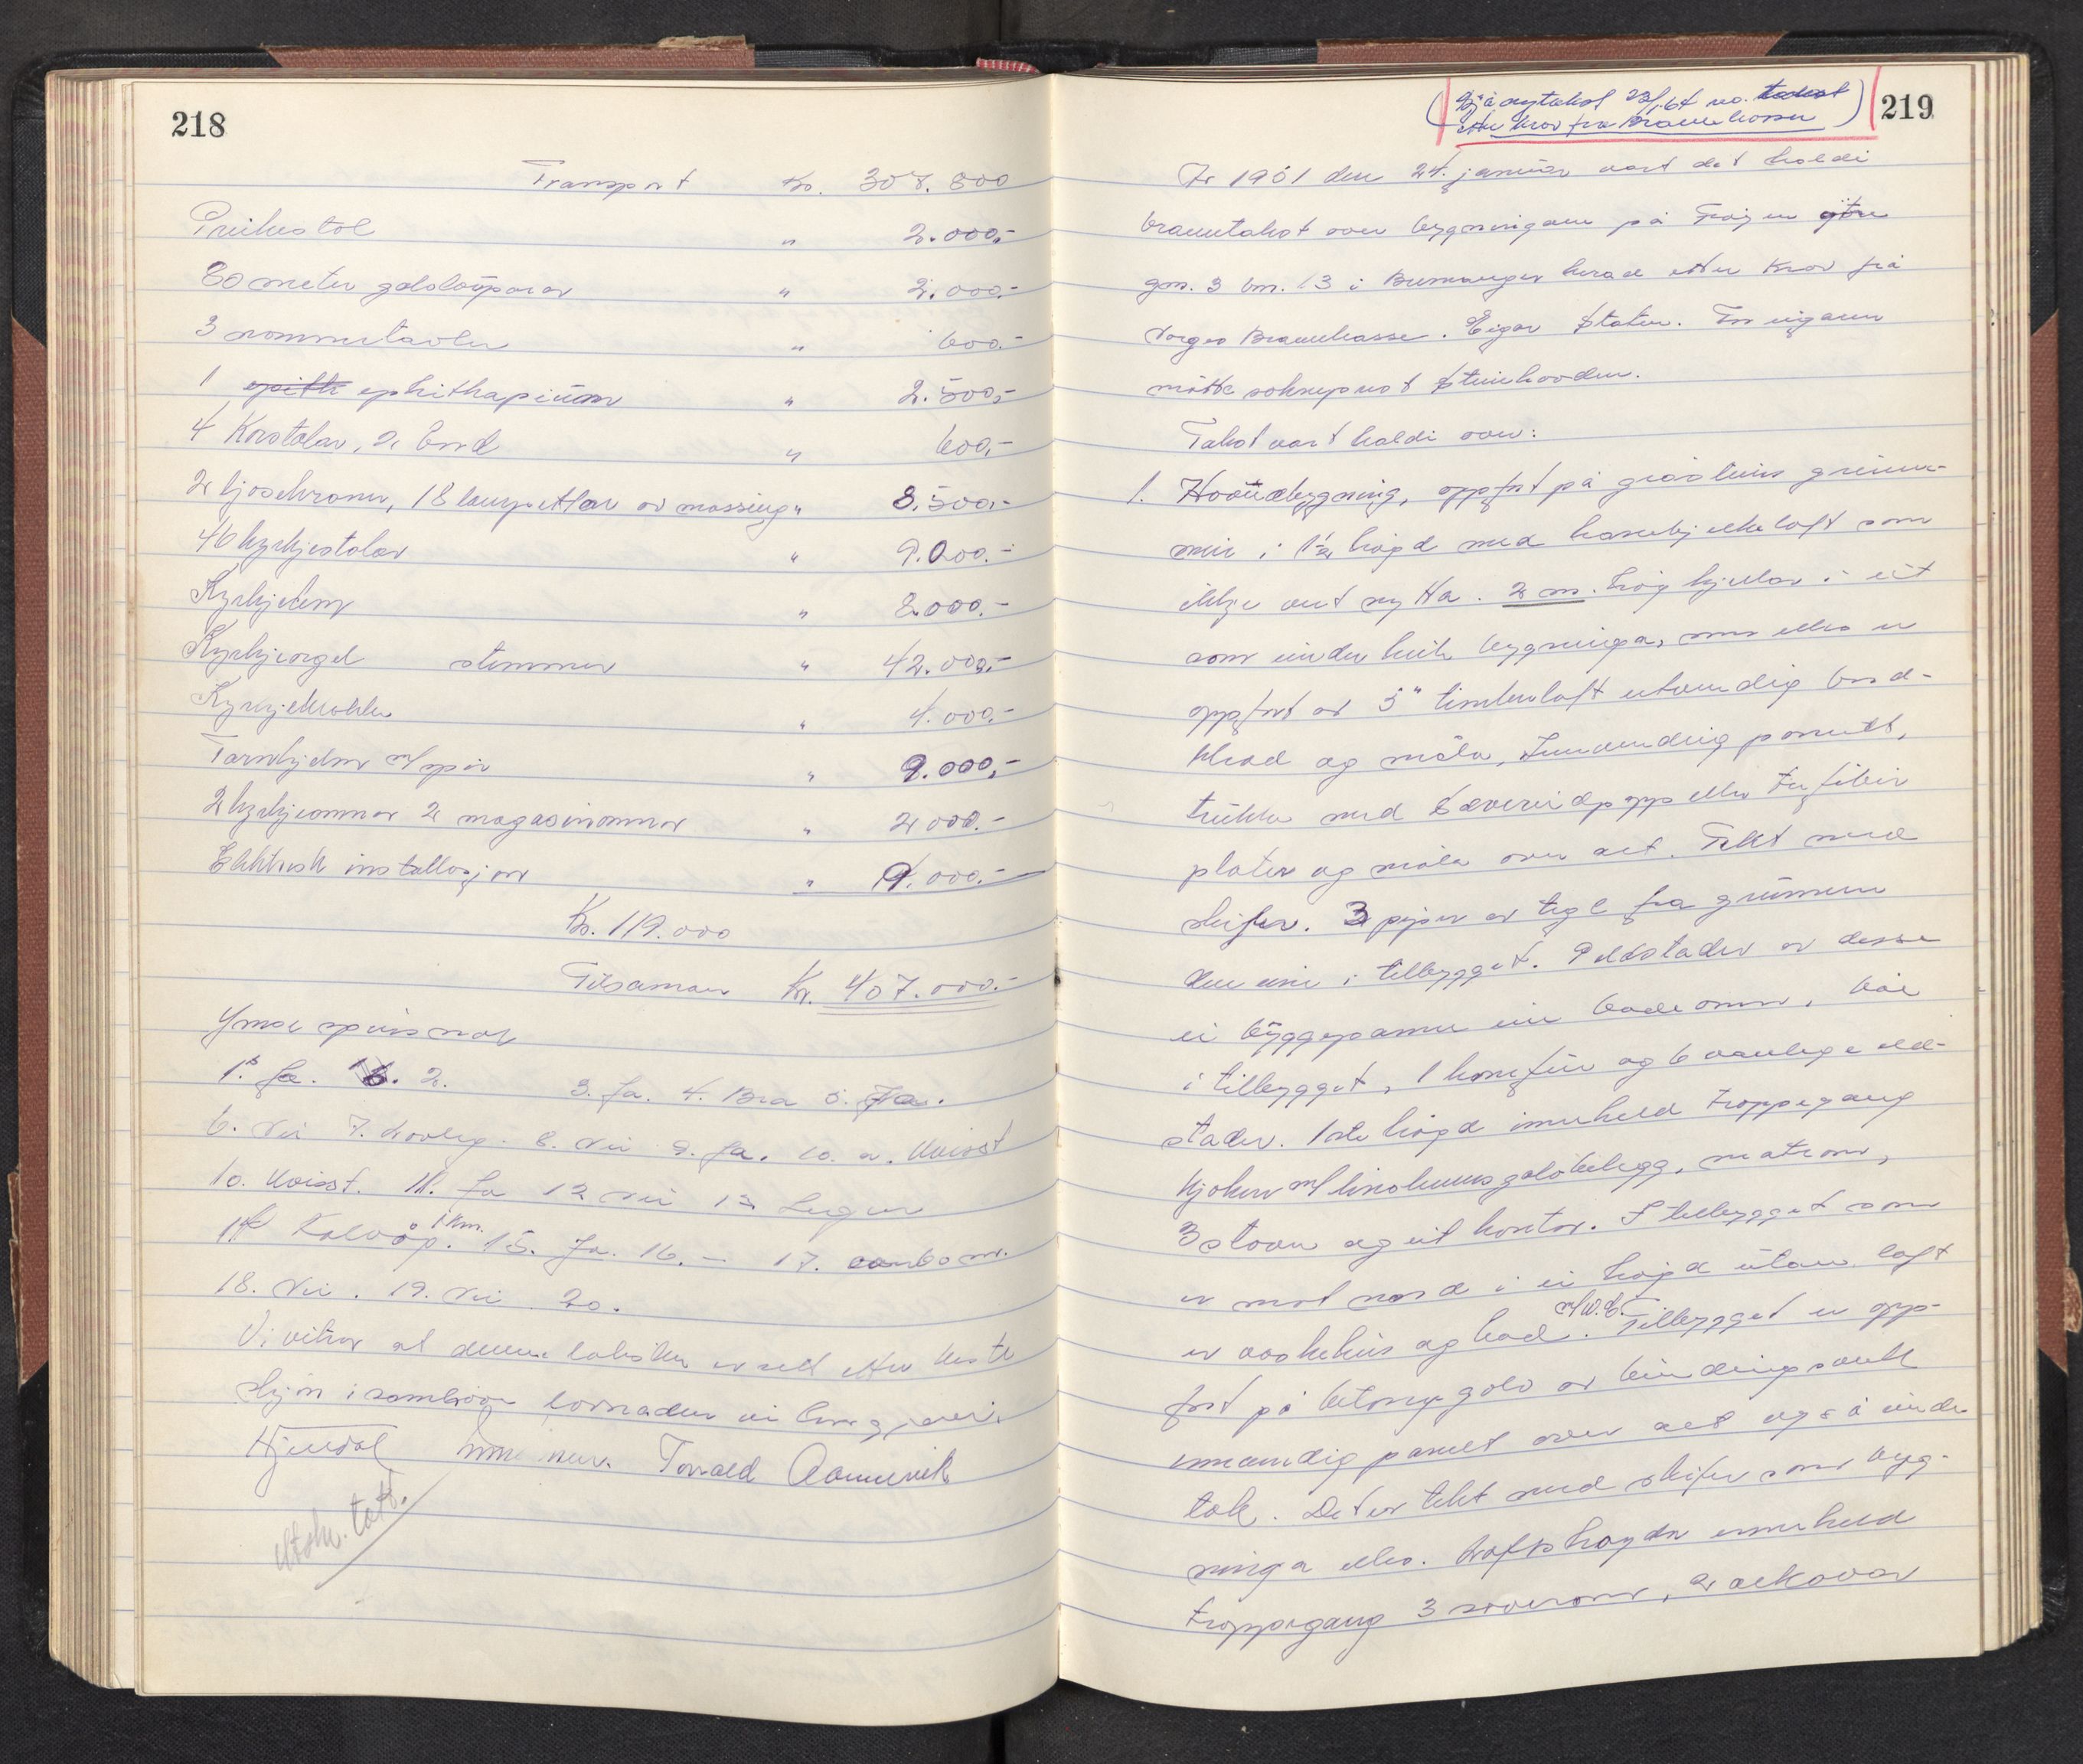 218
Transport Kr. 307.800
Preikestol " 2.000,-
80 meter golvløparar " 2.000.-
3 nommertavler " 600.-
1 ephithapium " 2.500,-
4 Korstolar, 2 bord " 600,-
2 ljosekroner, 18 lampettar av messing " 8.500.-
46 kyrkjestolar " 9.000.-
Kyrkjeur " 8.000.-
Kyrkjeorgel stemmer " 42.000,-
Kyrkjeklokker " 4.000.-
Tårnhjelm m/spir " 9.000,-
2 kyrkjeomnar 2 magasinomnar " 2000.-
Elektrisk installasjon " 9.000.-
Kr. 119.000
Tilsaman Kr. 407.000.-
Ymse spursmål
1. Ja. 2. 3. Ja. 4. Bra 5. Ja.
6. Nei 7. Lovleg. 8. Nei 9. Ja. 10. a. Kvisst
10. Kvisst. 11. Ja 12 Nei 13 Ingen
14 Kalvåg. 1 km. 15. Ja. 16. — 17. 60 m.
18. Nei. 19. Nei 20.
Vi vitnar at denne taksten er sett etter beste
skjøn i samhøve lovnaden vi har gjeve.
Hjendal Torvald Aamenvik
Utskr. tatt.
(Sjå nytakst 23/1.64 no.
etter krav fra Brannkassen) 219
År 1961 den 24. januar vart det haldi
branntakst over bygningane på Frøyen ytre
gnr. 3 bnr. 13 i Bremanger herad etter krav frå
Norges Brannkasse. Eigar Staten. For eigaren
møtte sokneprest Steinhovden.
Takst vart haldi over:
1. Hovudbygning, oppført på gråsteins grunn-
mur i 1½ høgd med hanebjelkeloft som
ikkje vert nytta. 2 m. høg kjellar i eit
rom under heile bygninga, som elles er
oppført av 5" timberlaft utvendig bord-
kled og måla, Innvendig panelt,
trekke med papp eller trefiber
plater og måla over alt. Tekt med
skifer. 3 piper av tegl fra grunnen
den eine i tilbygget. Eldstader er desse
ei byggepanne ein badeomn, båe
i tilbygget, 1 komfyr og 6 vanlege eld-
stader. 1ste høgd inneheld troppegang
kjøken m/linoleums golvbelegg, matrom,
3 stover og eit kontor. I tilbygget som
er mot nord i ei høgd utan loft
er vaskehus og bad m/W.C. Tilbygget er opp-
ført på betong golv av bindingsverk
innvendig panelt over alt også under
tak. Det er tekt med skifer som byg-
ninga elles. Loftshøgda inneheld
troppegang 3 soverom, 2 alkovar